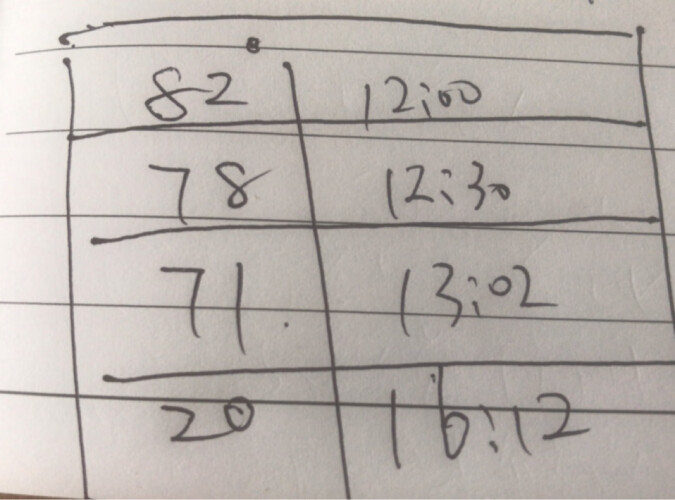 82 12:00
78 12:30
71 13:02
20 16:12